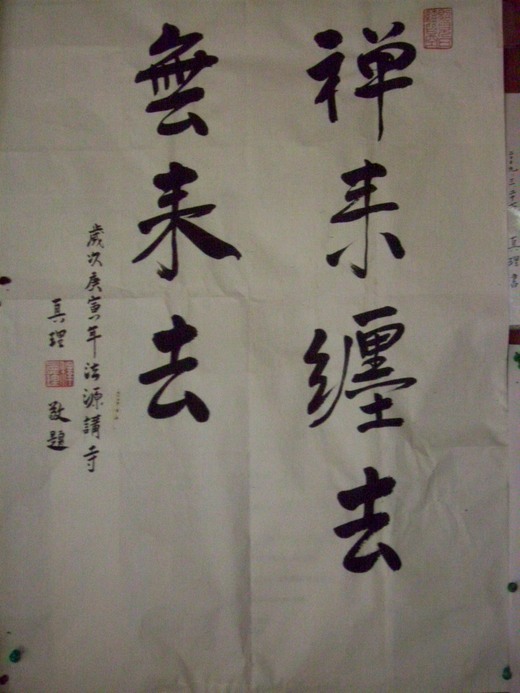 禅来纏去
無来去
歲次庚寅年法源講寺
真理 敬題
真理書